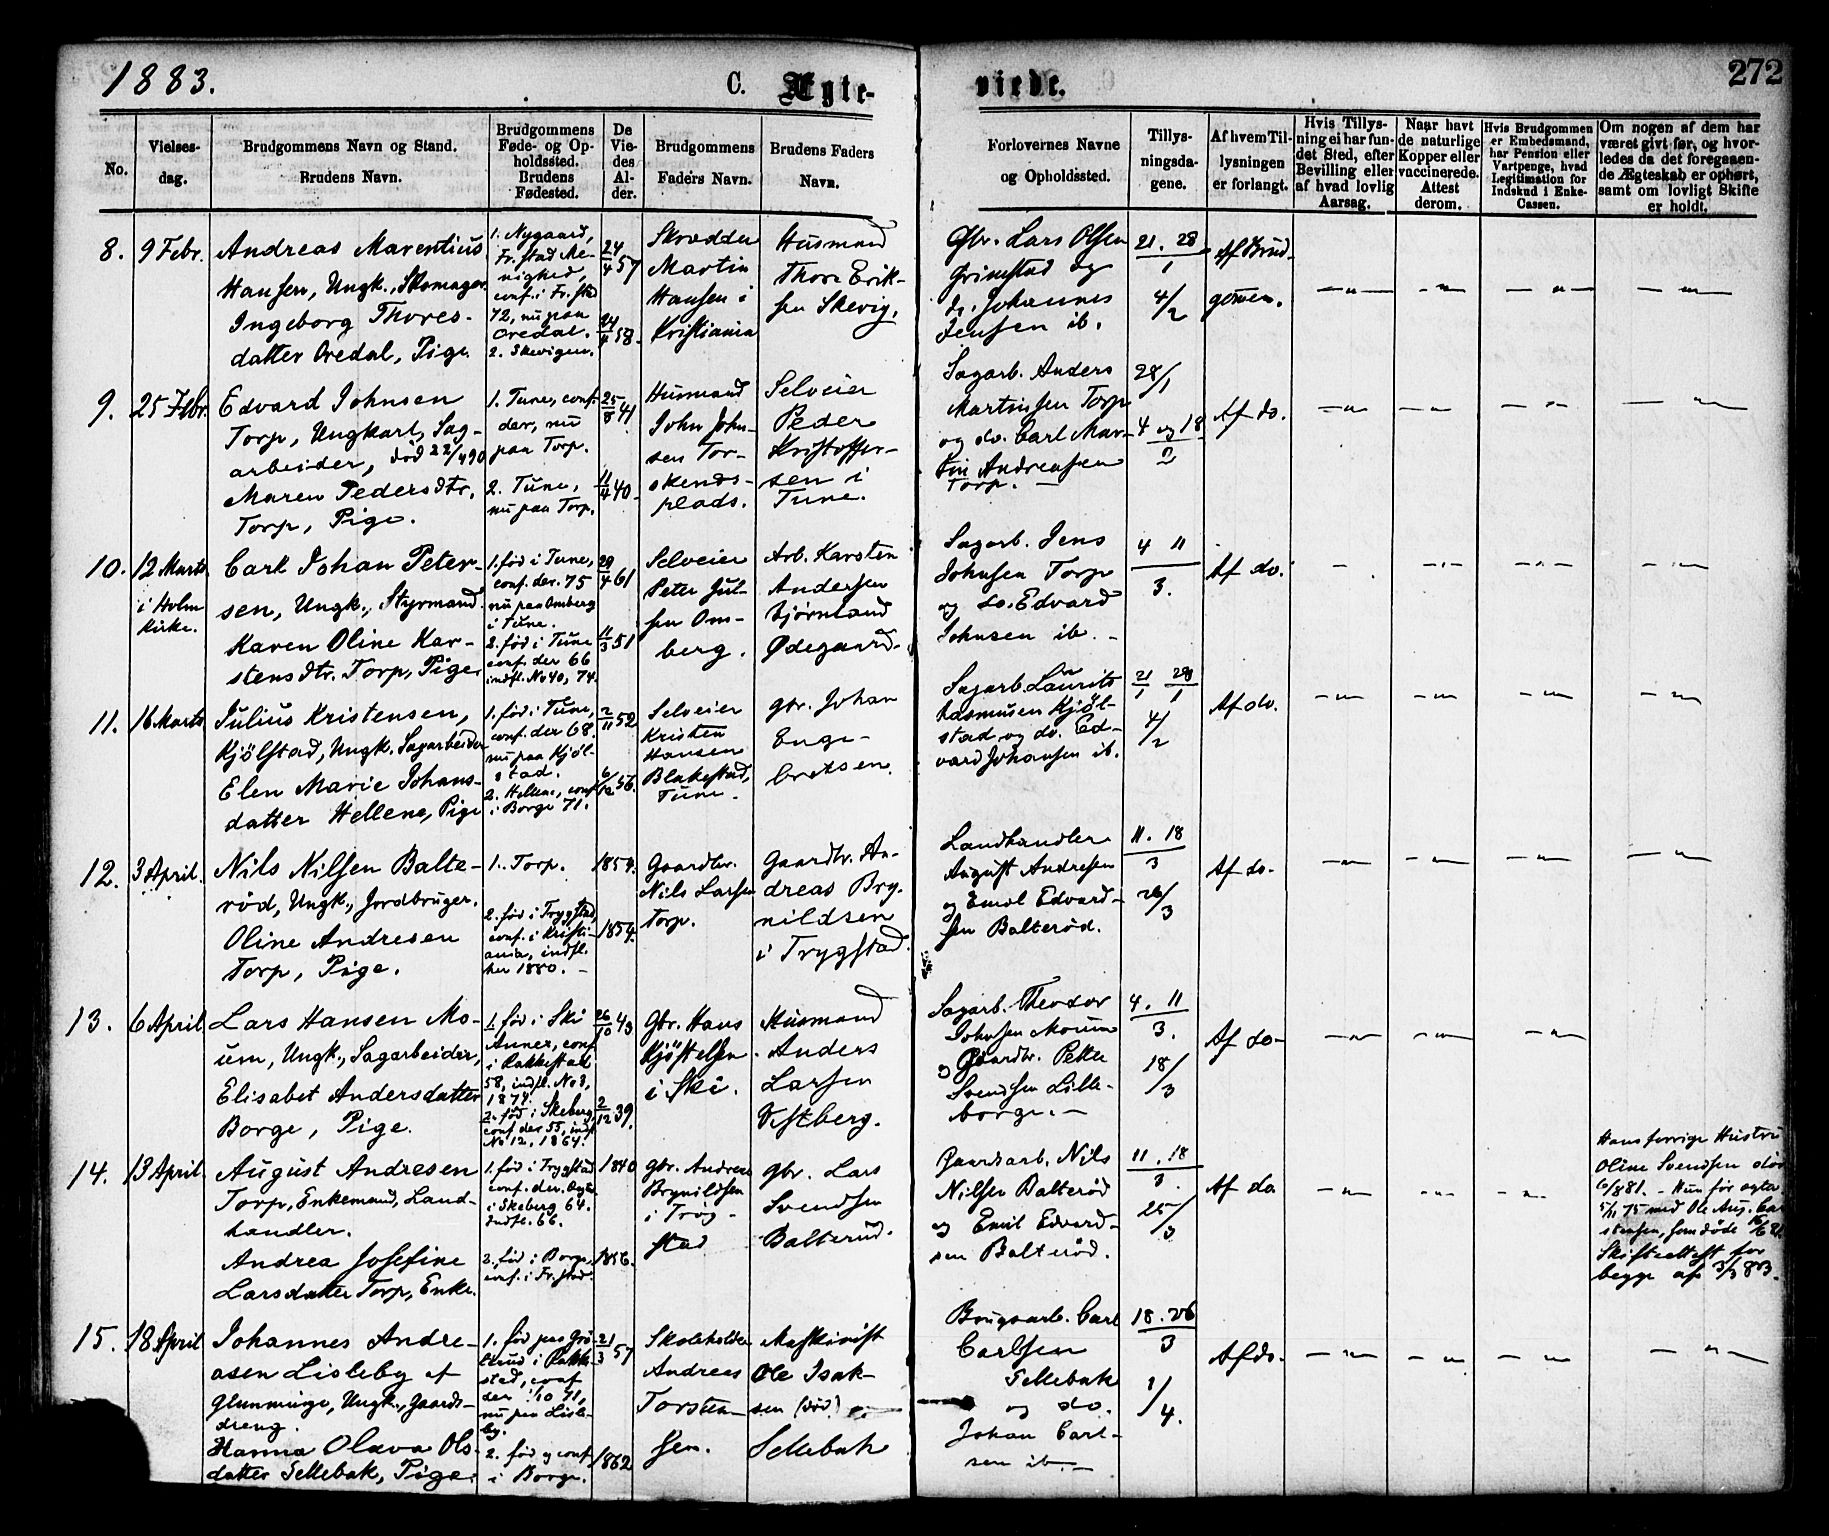 1883.
C. Ægte-
viede.
272
No.
Vielses-
dag.
Brudgommens Navn og Stand.
Brudens Navn.
Brudgommens
Føde- og Op-
holdssted.
Brudens
Fødested.
De
Vie-
des
Al-
der.
Brudgommens
Faders Navn.
Brudens Faders
Navn.
Forlovernes Navne
og Opholdssted.
Tillys-
ningsda-
gene.
Af hvem Til-
lysningen
er forlangt.
Hvis Tillys-
ning ei har fun-
det Sted, efter
Bevilling eller
af hvad lovlig
Aarsag.
Naar havt
de naturlige
Kopper eller
vaccinerede.
Attest
derom.
Hvis Brudgommen
er Embedsmand,
har Pension eller
Vartpenge, hvad
Legitimation for
Indskud i Enke-
Cassen.
Om nogen af dem har
været givt før, og hvor-
ledes da det foregaaen-
de Ægteskab er ophørt,
samt om lovligt Skifte
er holdt.
8.
9 Febr.
Andreas Marentius
Hansen, Ungk., Skomager
Ingeborg Thores-
datter Oredal, Pige
1. Nygaard,
Fr.stad Me-
nighed,
conf. i Fr.stad
72, nu paa
Oredal.
2. Skevigen.
24/4 57
24/4 58.
Skrædder
Martin
Hansen i
Kristiania
Husmand
Thore Erik-
sen Skevig.
Gbr. Lars Olsen
Grimstad og
do. Johannes
Jensen ib.
21. 28
1
4/2
Af Brud-
gomen.
9.
25 Febr.
Edvard Johnsen
Torp, Ungkarl, Sag-
arbeider, død 22/4 90
Maren Pedersdtr.
Torp, Pige.
1. Tune, conf.
der, nu
paa Torp.
2. Tune,
nu paa Torp.
25/8 41
11/4 40.
Husmand
John John-
sen Tor-
skends-
plads.
Selveier
Peder
Kristoffer-
sen i
Tune.
Sagarb. Anders
Martinsen Torp
og do. Carl Mar-
tin Andreassen
Torp.
28/1
4 og 18
2
Af do.
10.
12 Marts
i Holm
Kirke.
Carl Johan Peter-
sen, Ungk., Styrmand.
Karen Oline Kar-
stensdtr. Torp, Pige
1. født i Tune,
conf. der. 75
nu paa Omberg
i Tune.
2. født i Tune
conf. der 66
indfl. No 40, 74.
29/4 61
11/3 51
Selveier
Peter Jul-
sen Om-
berg.
Arb. Karsten
Andersen
Bjørnland
Ødegaard.
Sagarb. Jens
Johnsen Torp
og do. Edvard
Johnsen ib.
4 11
3.
Af do.
11.
16 Marts
Julius Kristensen,
Kjølstad, Ungk. Sagarbeider
Elen Marie Johans-
datter Hellene, Pige
1. født i Tune,
conf. der 68.
nu paa Kjøl-
stad.
2. Hellene, conf.
i Borge 71.
2/11 52
6/12 56.
Selveier
Kristen
Hansen
Blakestad,
Tune.
Gbr. Johan
Enge-
bretsen.
Sagarb. Laurits
Rasmusen Kjøl-
stad og do. Ed-
vard Johansen ib.
21/1 28/1
4/2
Af do.
12.
3 April.
Nils Nilsen Balte-
rød, Ungk., Jordbruger.
Oline Andresen
Torp, Pige.
1. Torp.
2. født i Trygstad,
conf. i Kristi-
ania, indfl.
her 1880.
1854.
1854.
Gaardbr.
Nils Larsen
Torp.
Gaardbr. An-
dreas Bry-
nildsen
i Trygstad.
Landhandler
August Andresen
og Emil Edvard-
sen Balterød.
11. 18
3
26/3
Af do.
13.
6 April
Lars Hansen Mo-
um, Ungk., Sagarbeider,
Elisabet Andersdatter
Borge, Pige.
1. født i Ski
Annex, conf.
i Rakkestad
58, indfl. No 8,
1874.
2. født i Skeberg,
conf. der 55, indfl.
No 12, 1864.
26/10 43
2/12 39.
Gbr. Hans
Kjøstelsen
i Ski.
Husmand
Anders
Larsen
Vestberg.
Sagarb. Theodor
Johnsen Moum
og Gaardbr. Petter
Svendsen Lille-
borge.
4. 11
3.
18/3
Af do.
14.
13 April.
August Andresen
Torp, Enkemand, Land-
handler.
Andrea Josefine
Larsdatter Torp, Enke.
1. født i Trygstad
conf. der.
i Skeberg 64.
Indfl. 66.
2. født i Borge,
conf. i Fr.stad.
1840
1856.
Gbr. Andreas
Brynildsen
i Trøg-
stad
Gbr. Lars
Svendsen
Balterud.
Gaardarb. Nils
Nilsen Balterød
og Emil Edvard-
sen Balterød.
11. 18
3.
25/3
Af do
Hans forrige Hustru
Oline Svendsen død
6/8 81. - Hun før egta
5/11 75 med Ole Aug. Car-
stensen, som døde
Skifteattest for
begge af 3/3 83.
15.
18 April
Johannes Andre-
asen Lisleby af
Glemminge, Ungk., Gaards-
dreng.
Hanna Olava Ols-
datter Sellebak, Pige.
1. født paa Grø-
strud i Rakke-
stad, conf.
der 1/10 71,
nu paa Lisle-
by.
2. født og conf.
i Borge.
21/3 57
1862
Skoleholder
Andreas
Torsten-
sen.
Maskinist
Ole Isak-
sen (død)
Sellebak
Brugsarb. Carl
Carlsen
Sellebak
og do.
Johan Carl-
sen ib.
18. 26
3
1/4.
Af do.